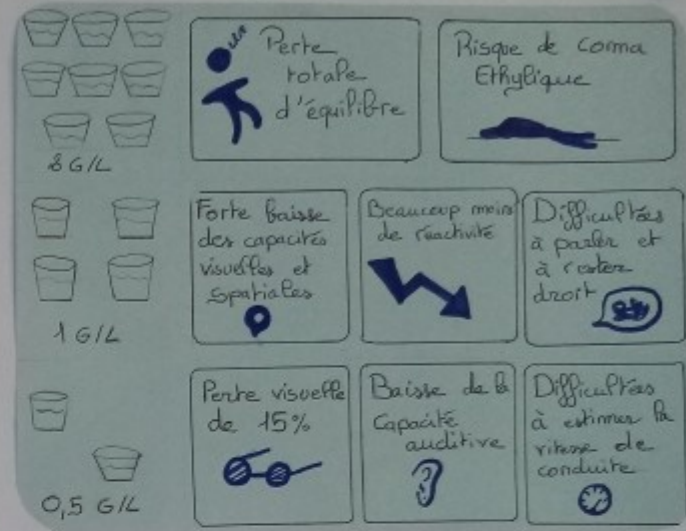 Perte
totale
d'équilibre
Risque de coma
Ethylique
8 G/L
Forte baisse
des capacités
visuelles et
spatiales
Beaucoup moins
de réactivité
Difficultées
à parler et
à rester
droit
1 G/L
Perte visuelle
de 15%
Baisse de la
Capacité
auditive
Difficultées
à estimer la
vitesse de
conduite
0,5 G/L